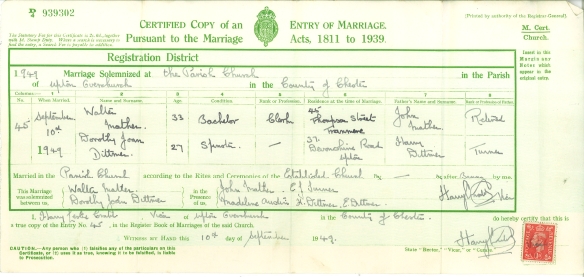 939302
CERTIFIED COPY of an ENTRY OF MARRIAGE.
Pursuant to the Marriage Acts, 1811 to 1939.
(Printed by authority of the Registrar General)
M. Cert.
Church.
The Statutory Fee for this Certificate is
Registration District
1949 Marriage Solemnized at the Parish Church in the Parish
of Upton Overchurch in the County of Chester
Insert in this Margin any Notes which appear in the original entry.
Columns:— 1 2 3 4 5 6 7 8
No. When Married. Name and Surname. Age Condition Rank or Profession. Residence at the time of Marriage. Father's Name and Surname. Rank or Profession of Father.
45 September 10th 1949
Walter Mather. 33 Bachelor Clerk 45 Thompson Street Tranmere John Mather. Retired
Dorothy Joan Dittmer. 27 Spinster. 37 Devonshire Road Upton Harry Dittmer Turner
Married in the Parish Church according to the Rites and Ceremonies of the Established Church by or after Banns by me,
This Marriage was solemnized between us,
Walter Mather
Dorothy Joan Dittmer
in the Presence of us,
John Mather. E J Turner
Madeline Austin H. Dittmer E. Dittmer
Vicar
I, Harry Vicar of Upton Overchurch in the County of Chester do hereby certify that this is
a true copy of the Entry No. 45 in the Register Book of Marriages of the said Church.
WITNESS MY HAND this 10th day of September 1949.
CAUTION.—Any person who (1) falsifies any of the particulars on this Certificate, or (2) uses it as true, knowing it to be falsified, is liable to Prosecution.
State "Rector," "Vicar," or "Curate."